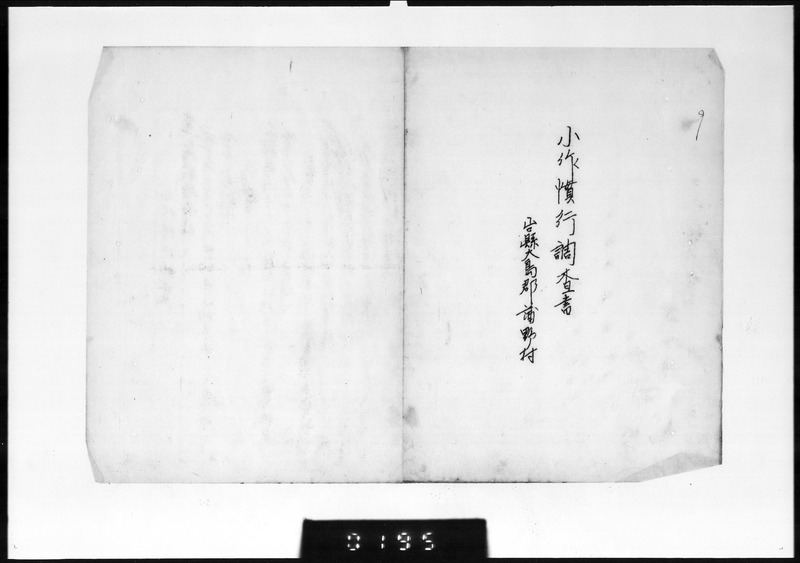 9
小作慣行調査書
山口縣大島郡蒲野村
0195